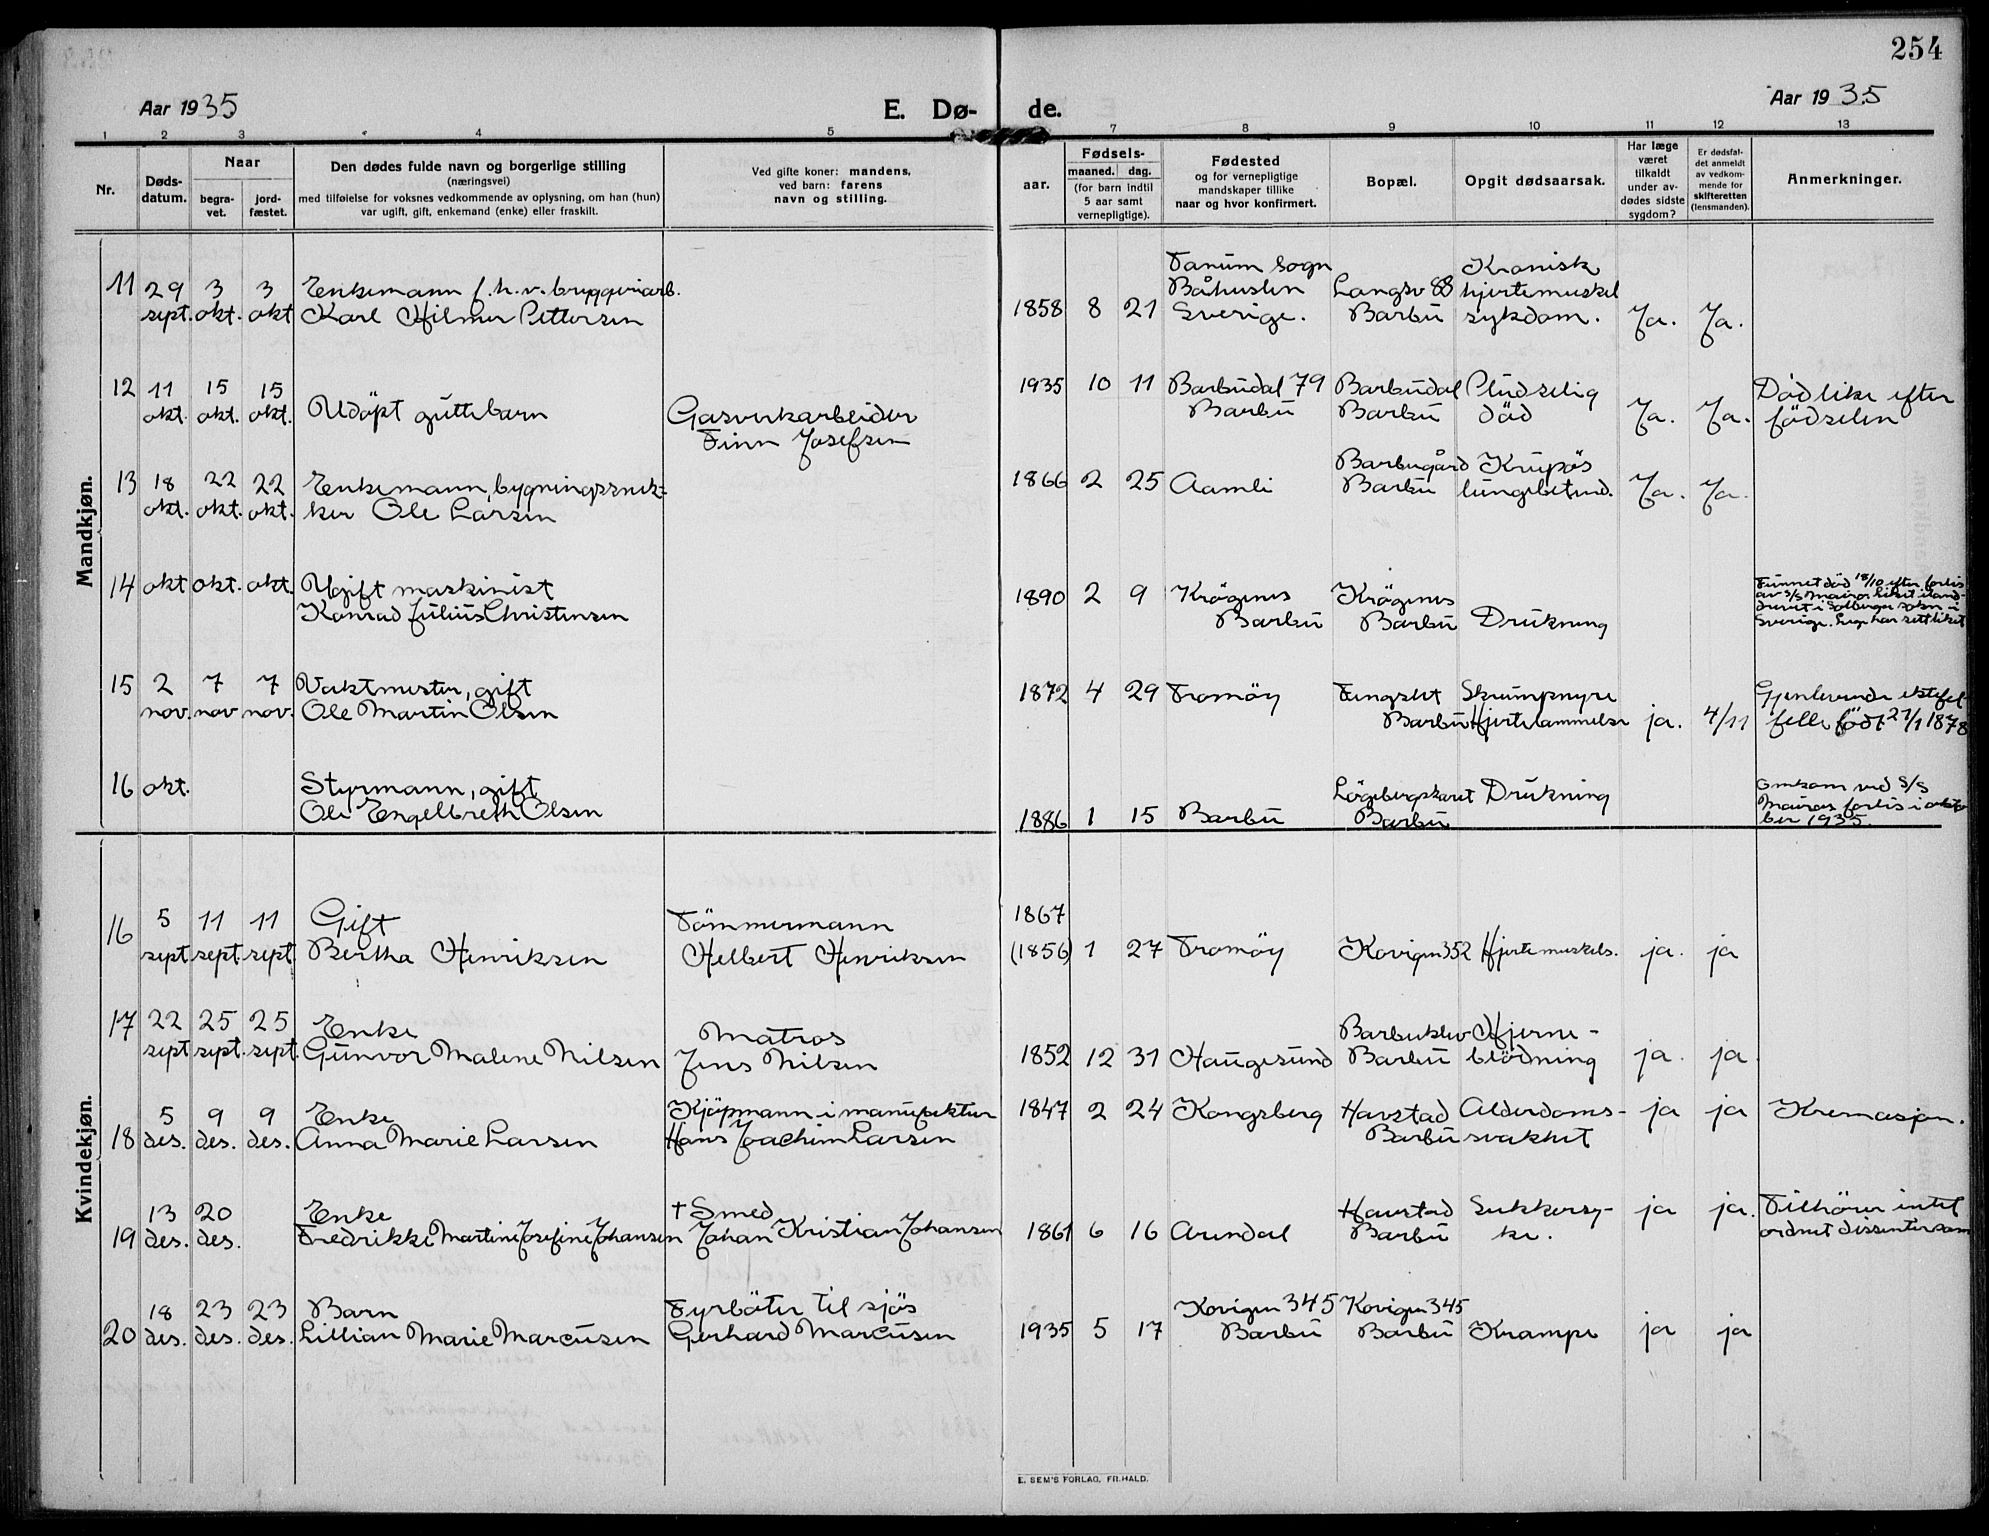 254
Aar 1935
E. Dø-
de.
Aar 1935
1 2 3 4 5 7 8 9 10 11 12 13
Nr.
Døds-
datum.
Naar
begra-
vet.
jord-
fæstet.
Den dødes fulde navn og borgerlige stilling
(næringsvei)
med tilføielse for voksnes vedkommende av oplysning, om han (hun)
var ugift, gift, enkemand (enke) eller fraskilt.
Ved gifte koner: mandens,
ved barn: farens
navn og stilling.
aar.
Fødsels-
maaned. dag.
(for barn indtil
5 aar samt
vernepligtige).
Fødested
og for vernepligtige
mandskaper tillike
naar og hvor konfirmert.
Bopæl.
Opgit dødsaarsak.
Har læge
været
tilkaldt
under av-
dødes sidste
sygdom?
Er dødsfal-
det anmeldt
av vedkom-
mende for
skifteretten
(lensmanden).
Anmerkninger.
Mandkjøn.
11 29 3 3 Enkemann f.h.v. bryggeriarb.
sept. okt. okt Karl Hilmer Pettersen
Tanum sogn
Båhuslen
Sverige.
1858 8 21
Langsv 88
Barbu
Kronisk
hjertemuskel
sykdom.
Ja. Ja.
12 11 15 15
okt. okt. okt. Udöpt guttebarn
Gasverkarbeider
Finn Josefsen
1935 10 11 Barbudal 79
Barbu
Barbudal
Barbu
Pludselig
död
Ja. Ja.
Död like efter
födselen
13 18 22 22 Enkemann, bygningssnek=
okt. okt. okt. ker Ole Larsen
1866 2 25 Aamli
Barbugård
Barbu
Krupös
lungebetend.
Ja. Ja.
14 okt okt. okt. Ugift maskinist
Konrad Julius Christensen
1890 2 9 Krögenes
Barbu
Krögenes
Barbu
Drukning
Funnet död 18/10 efter forlis
av s/s Mairos liket iland-
drevet i Solberga sokn i
Sverige. Lege har sett liket
15 2 7 7 Vaktmester, gift
nov. nov nov. Ole Martin Olsen
1872 4 29 Tromöy
Fengslet
Barbu
Skrumpnyre
Hjertelammelse
ja. 4/11
Gjenlevende ektefel-
felle född 27/1 1878
16 okt. Styrmann, gift
Ole Engelbreth Olsen
1886 1 15 Barbu
Barbu
Drukning
Omkom ved S/S
Mairos forlis i okto
ber 1935.
Kvindekjøn.
16 5 11 11 Gift
sept sept. sept. Bertha Henriksen
Tömmermann
Helbert Henriksen
1867
(1856) 1 27 Tromöy
Kovigen 352 Hjertemuskels. ja. ja
17 22 25 25 Enke
sept sept. sept. Gunvor Malene Nilsen
Matros
Jens Nilsen
1852 12 31 Haugesund
Barbuklev
Barbu
Hjerne-
blödning
ja. ja.
18 5 9 9 Enke
des. des. des. Anna Marie Larsen
Kjöpmann i manufaktur
Hans Joachim Larsen
1847 2 24 Kongsberg
Havstad
Barbu
Alderdoms-
svakhet
ja ja Kremasjon.
19 13 20 Enke
des. des. Fredrikke Martine Josefine Johansen
+ Smed
Johan Kristian Johansen
1861 6 16 Arendal
Havstad
Barbu
Sukkersy-
ke.
ja ja.
Tilhörer intet
ordnet dissentersam
20 18 23 23 Barn
des. des. des. Lillian Marie Marcusen
Fyrböter til sjös
Gerhard Marcusen
1935 5 17
Kovigen 345
Barbu
Kovigen 345
Barbu
Krampe
ja ja
E. SEM'S FORLAG, FR.HALD.